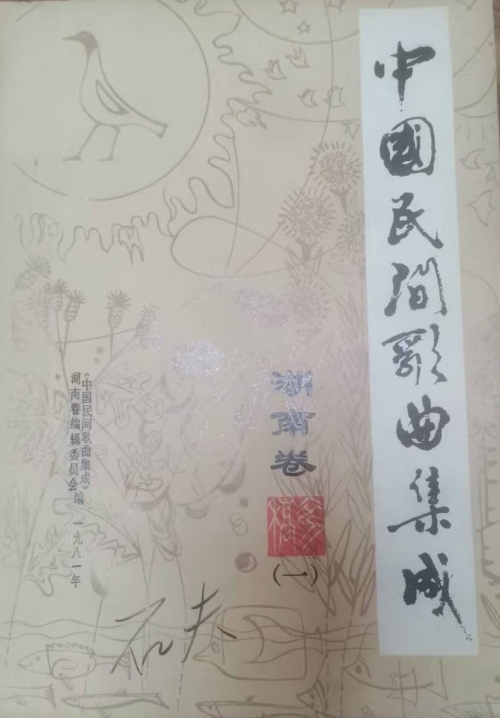 中國民间歌曲集成
湖南卷
(一)
《中国民间歌曲集成》
湖南卷编辑委员会 编 一九八一年
石夫